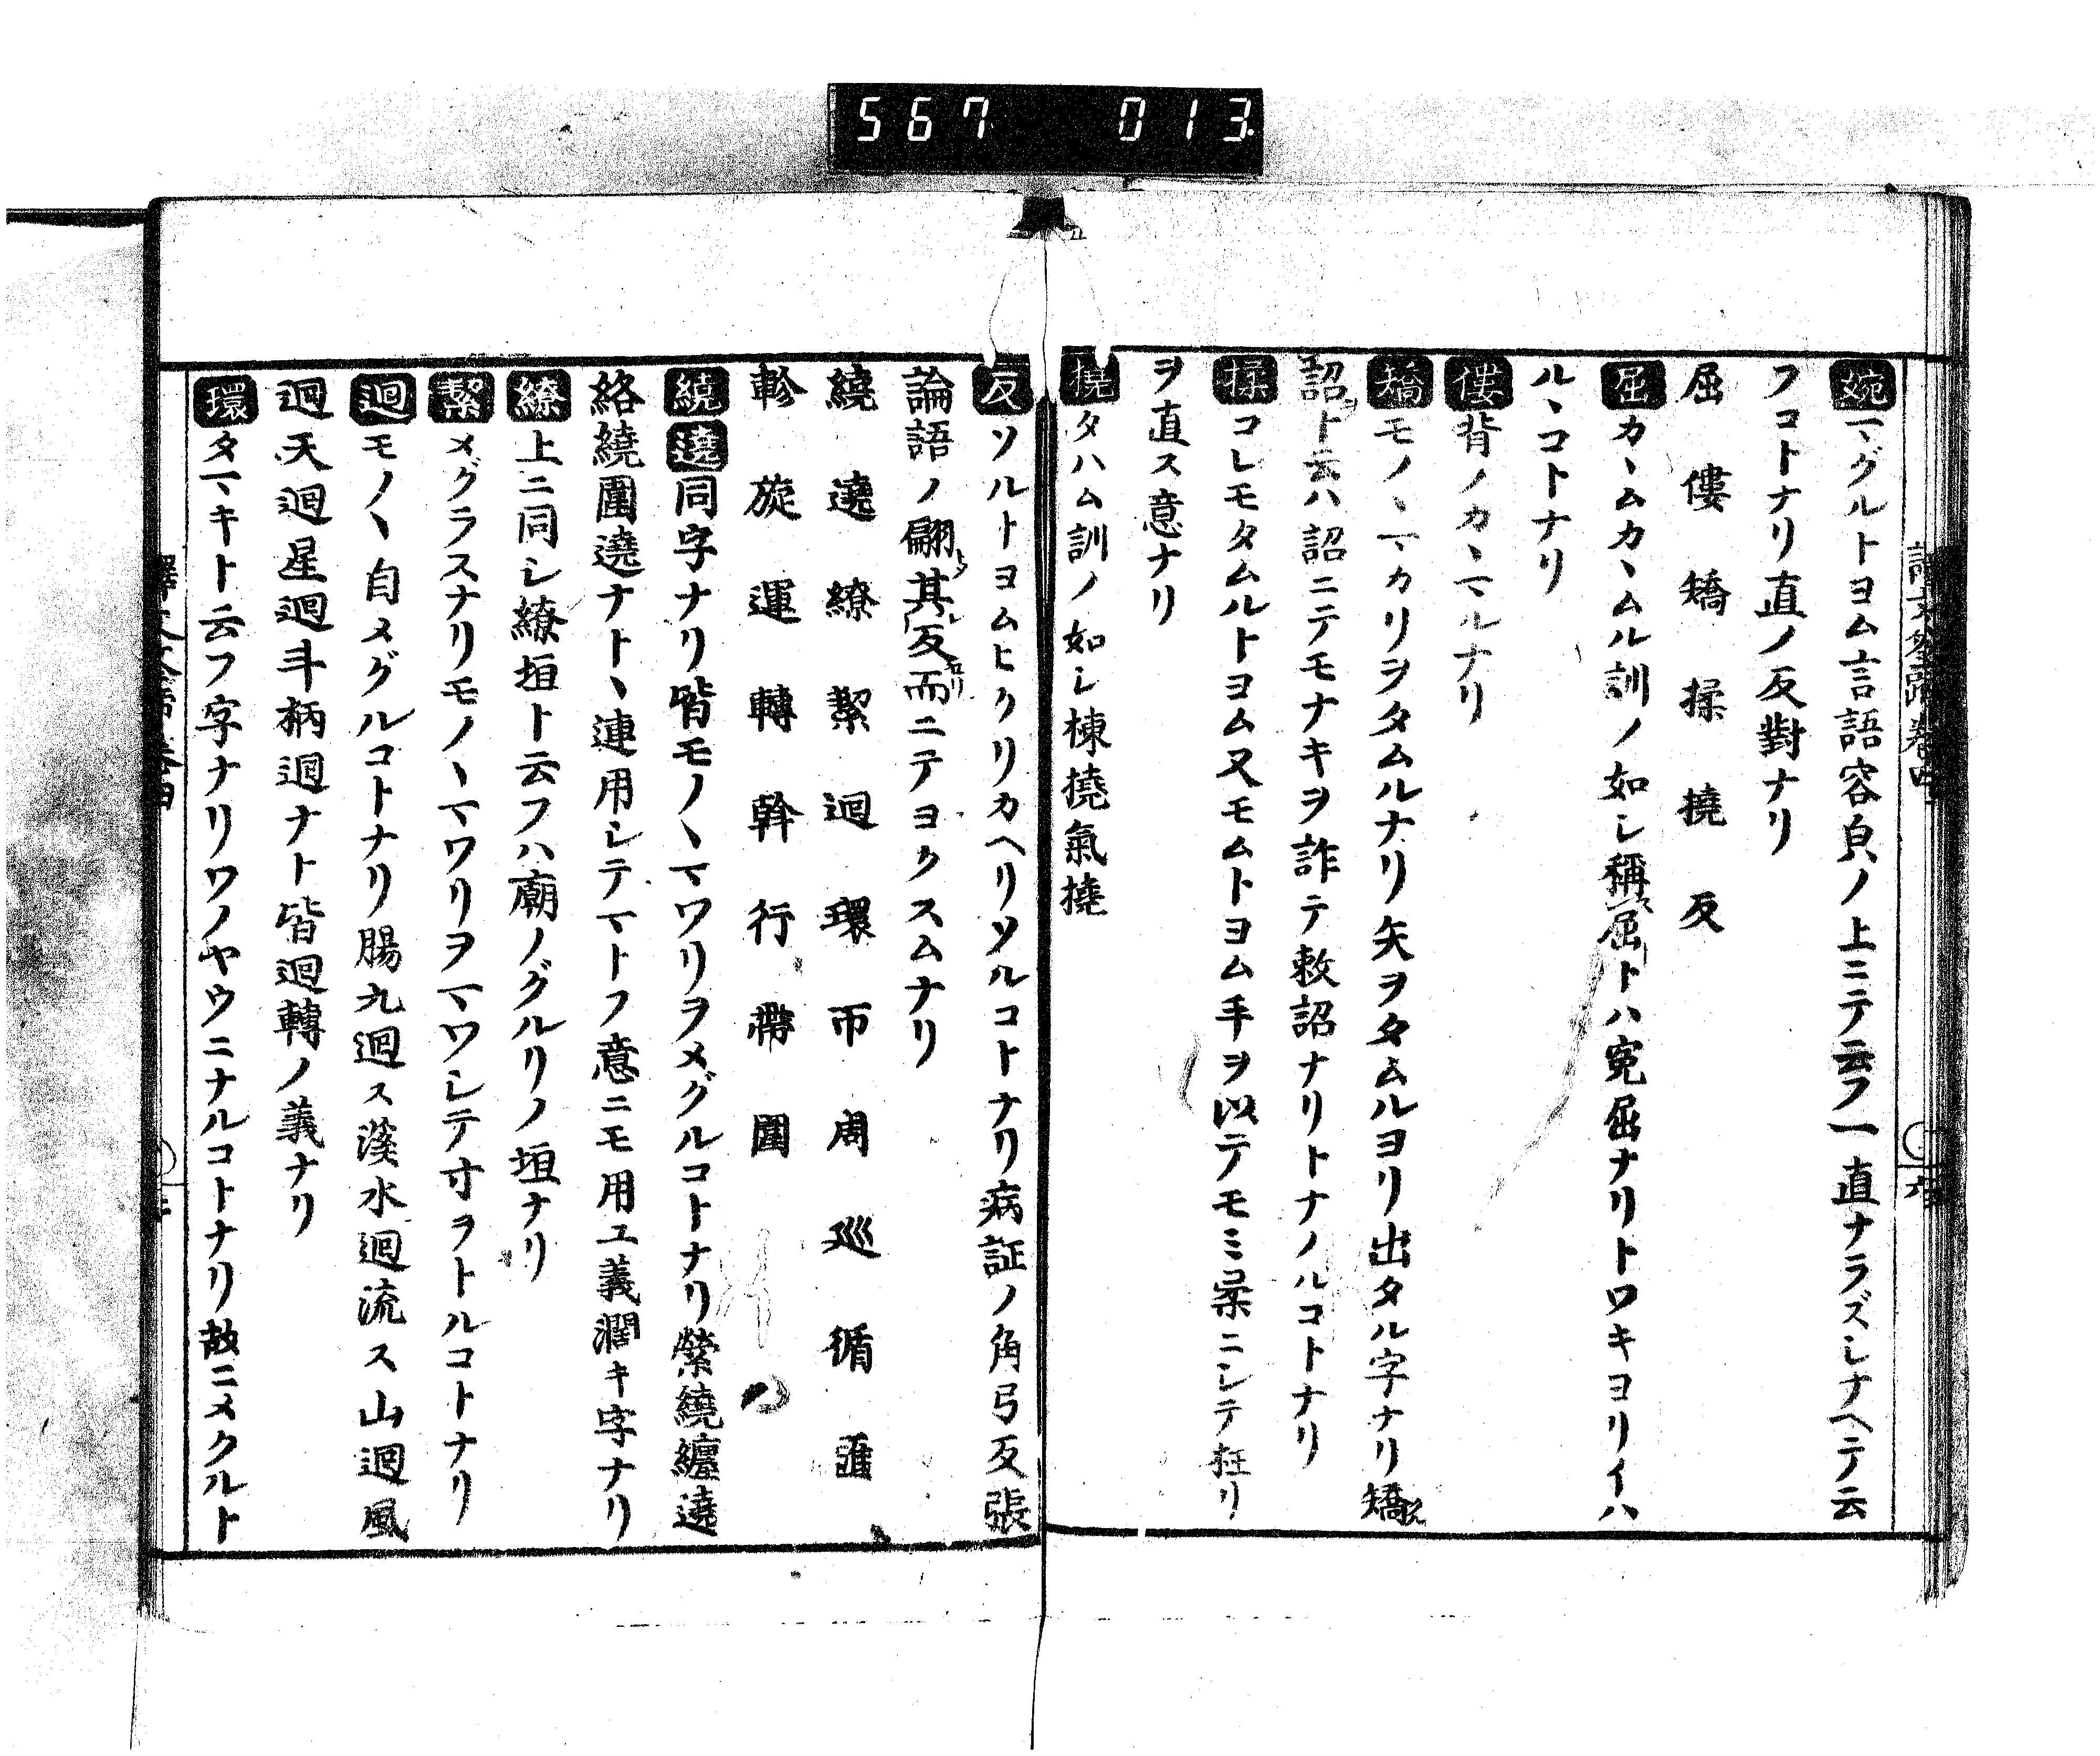 567 013
婉マグルトヨム言語容皃ノ上ニテ云フ一直ナラズシナヘテ云
フコトナリ直ノ反對ナリ
屈 僂 矯 揉 撓 反
屈カヽムカヽムル訓ノ如シ稱屈トハ寃屈ナリトワキヨリイハ
ルヽコトナリ
僂背ノカヽマルナリ
矯モノヽマカリヲタムルナリ矢ヲタムルヨリ出タル字ナリ矯
詔ト云ハ詔ニテモナキヲ詐テ敕詔ナリトナノルコトナリ
揉コレモタムルトヨム又モムトヨム手ヲ以テモミ柔ニシテ抂リ
ヲ直ス意ナリ
撓タハム訓ノ如シ棟撓氣撓
反ソルトヨムヒクリカヘリソルコトナリ病証ノ角弓反張
論語ノ翩其反而ニテヨクスムナリ
繞 遶 繚 絜 迴 環 帀 周 巡 循 匯
軫 旋 運 轉 斡 行 帶 圍
繞遶同字ナリ皆モノヽマワリヲメグルコトナリ縈繞纏遶
絡繞圍遶ナトヽ連用シテマトフ意ニモ用ユ義濶キ字ナリ
繚上ニ同シ繚垣ト云フハ廟ノグルリノ垣ナリ
絜メグラスナリモノヽマワリヲマワシテ寸ヲトルコトナリ
迴モノヽ自メグルコトナリ腸九迴ス溪水迴流ス山迴風
迴天迴星迴斗柄迴ナト皆迴轉ノ義ナリ
環タマキト云フ字ナリワノヤウニナルコトナリ故ニメクルト